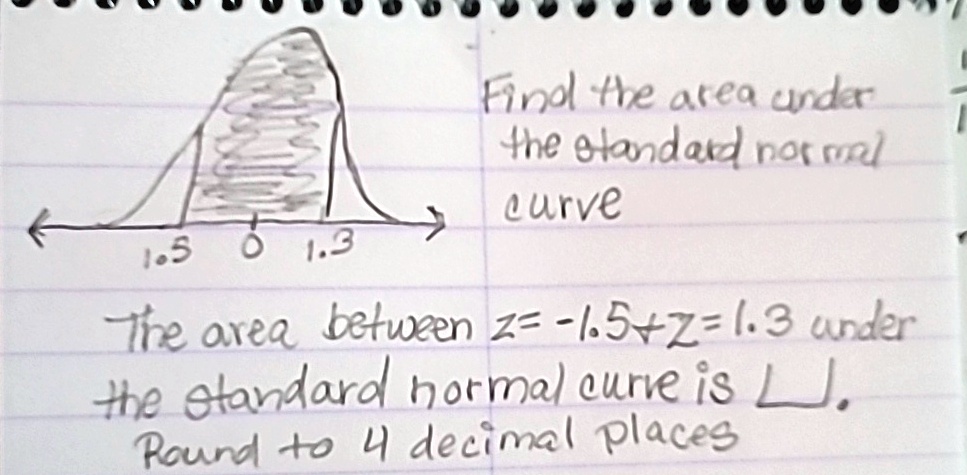 Find the area under
the standard normal
curve
1.5 0 1.3
The area between z= -1.5+z=1.3 under
the standard normal curve is ⌊⌋.
Round to 4 decimal places